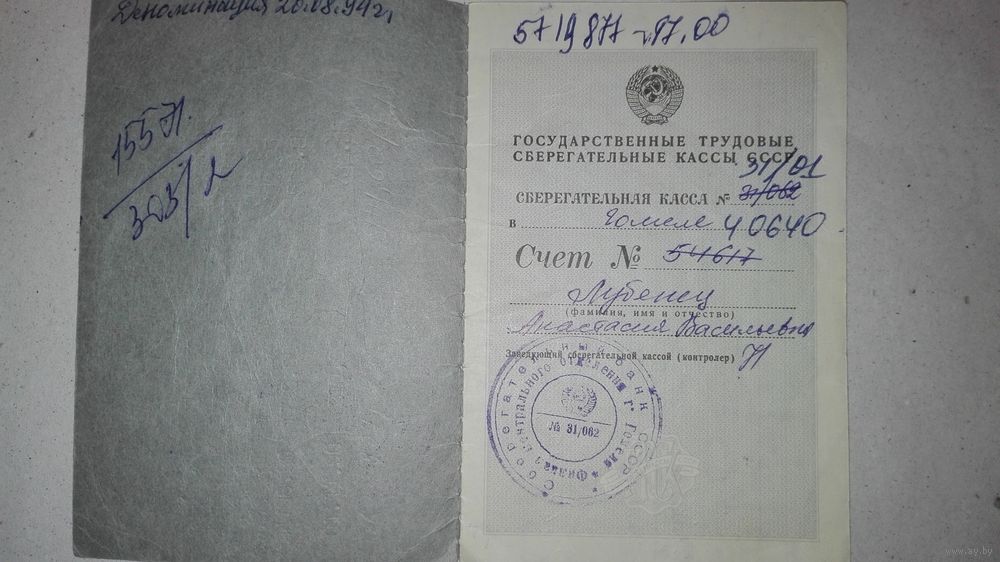 Деноминация 20.08.94 г.
1557.
303/2
5719877 - 97.00
ГОСУДАРСТВЕННЫЕ ТРУДОВЫЕ
СБЕРЕГАТЕЛЬНЫЕ КАССЫ СССР
31/01
СБЕРЕГАТЕЛЬНАЯ КАССА № 31/062
в Гомеле 40640
Счет № 54617
Лубенец
(фамилия, имя и отчество)
Анастасия Васильевна
Заведующий сберегательной кассой (контролер)
Сберегательный банк СССР
Филиал Центрального отделения г. Гомеля
№ 31/062
www.ay.by